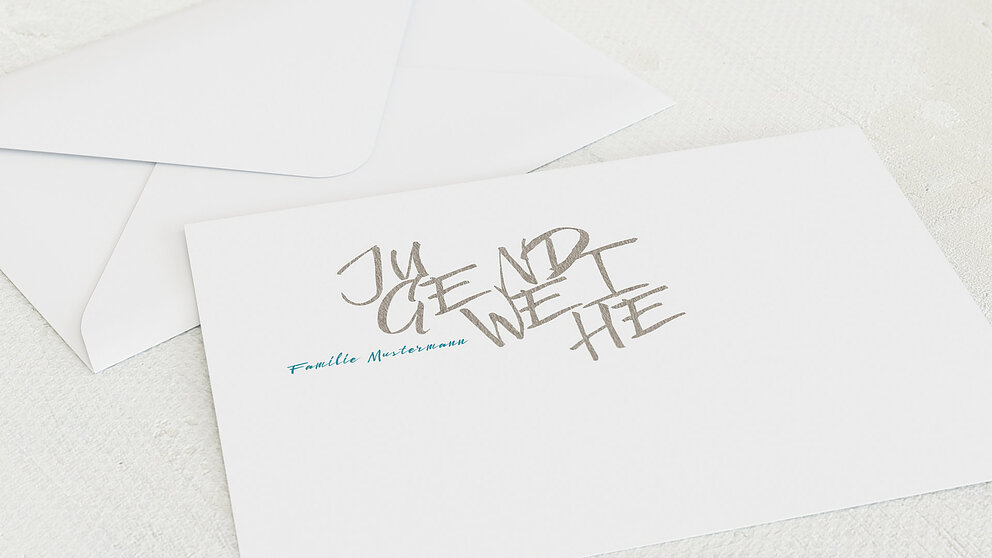 JU
GEND
WEI
HE
Familie Mustermann